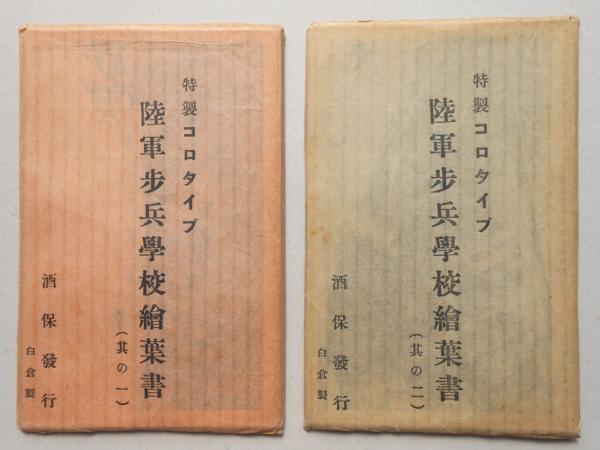 特製コロタイプ
陸軍步兵學校繪葉書
(其の一)
酒保發行
白倉製
特製コロタイプ
陸軍步兵學校繪葉書
(其の二)
酒保發行
白倉製